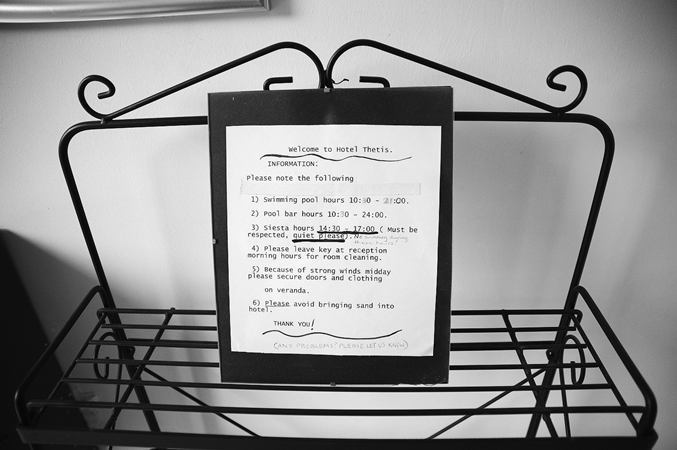 Welcome to Hotel Thetis.
INFORMATION:
Please note the following
1) Swimming pool hours 10: - :00.
2) Pool bar hours 10: - 24:00.
3) Siesta hours 14:30 - 17:00 ( Must be
respected, quiet please). No swimming during
these hours!
4) Please leave key at reception
morning hours for room cleaning.
5) Because of strong winds midday
please secure doors and clothing
on veranda.
6) Please avoid bringing sand into
hotel.
THANK YOU!
(ANY PROBLEMS PLEASE LET US KNOW)